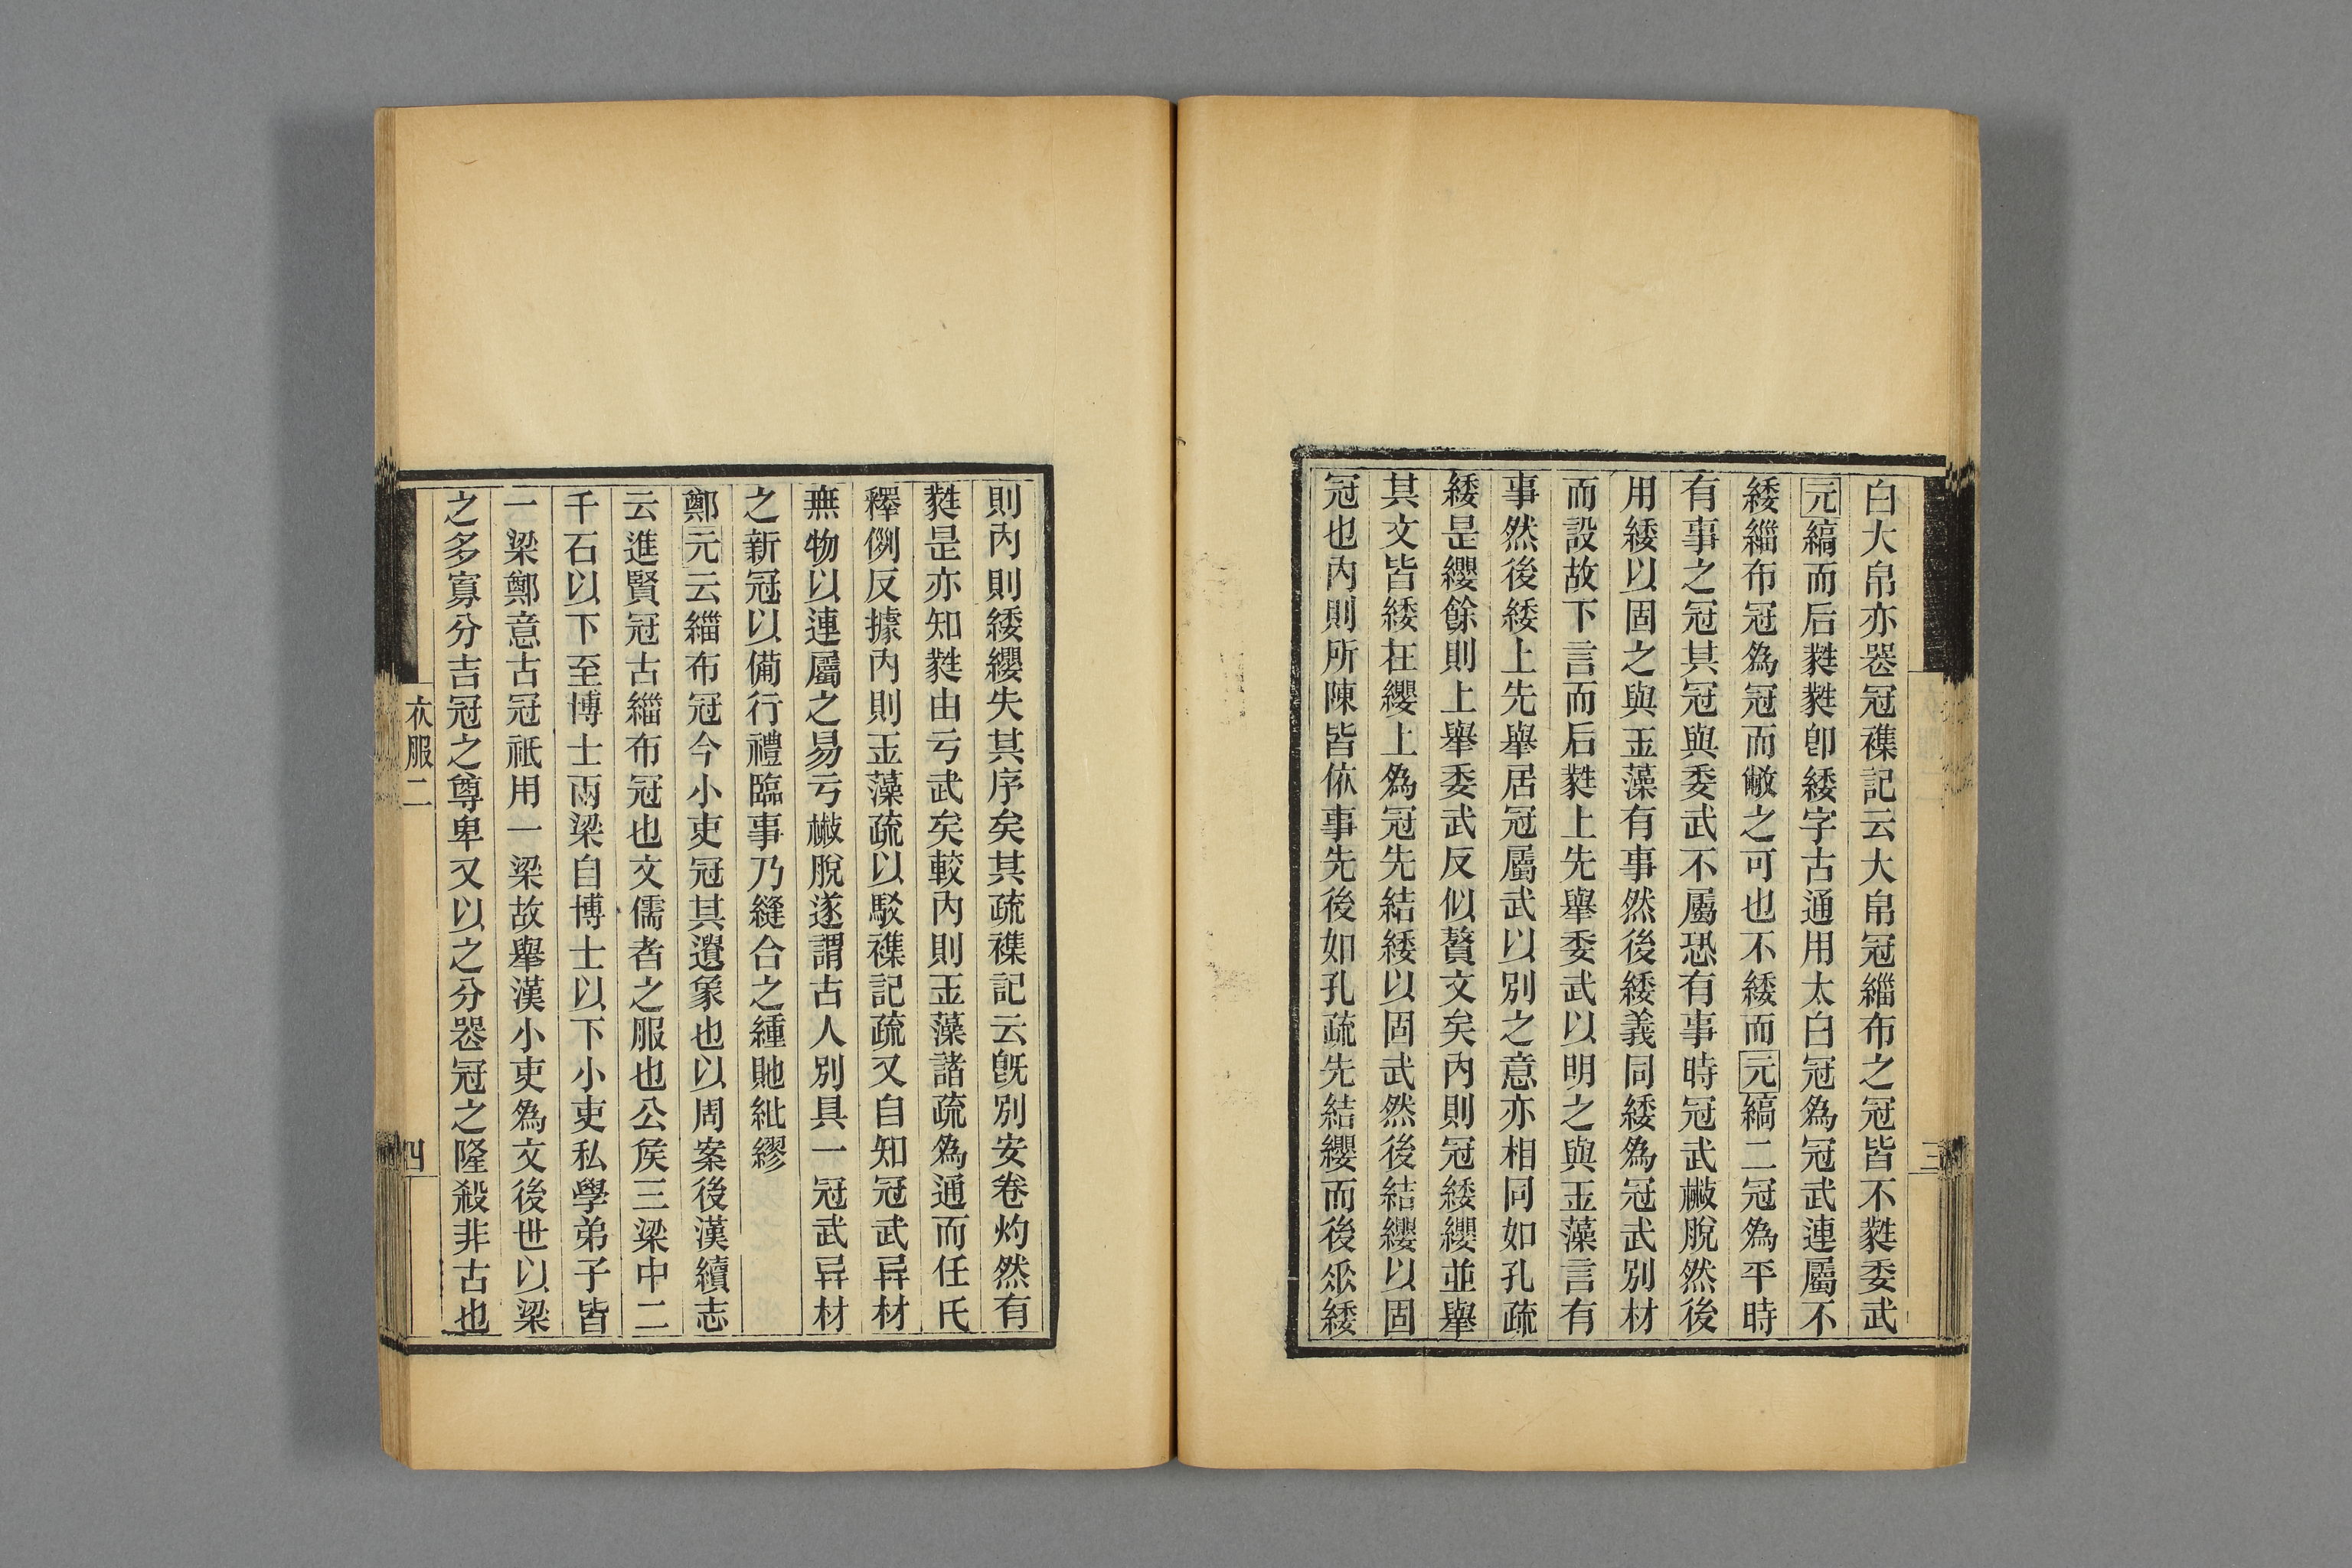 白大帛亦器冠襍記云大帛冠緇布之冠皆不蕤委武
元縞而后蕤蕤卽緌字古通用太白冠爲冠武連屬不
緌緇布冠爲冠而敝之可也不緌而元縞二冠爲平時
有事之冠其冠與委武不屬恐有事時冠武檆脫然後
用緌以固之與玉藻有事然後緌義同緌爲冠武別材
而設故下言而后蕤上先舉委武以明之與玉藻言有
事然後緌上先舉居冠屬武以別之意亦相同如孔疏
緌是纓餘則上舉委武反似贅文矣內則冠緌纓並舉
其文皆緌在纓上爲冠先結緌以固武然後結纓以固
冠也內則所陳皆依事先後如孔疏先結纓而後𠂢緌
三
則內則緌纓失其序矣其疏襍記云旣別安卷灼然有
蕤是亦知蕤由亏武矣較內則玉藻諸疏爲通而任氏
釋例反據內則玉藻疏以駁襍記疏又自知冠武异材
無物以連屬之易亏檆脫遂謂古人別具一冠武异材
之新冠以備行禮臨事乃縫合之緟貤紕繆
鄭元云緇布冠今小吏冠其遺象也以周案後漢續志
云進賢冠古緇布冠也文儒者之服也公矦三梁中二
千石以下至博士兩梁自博士以下小吏私學弟子皆
一梁鄭意古冠祇用一梁故舉漢小吏爲文後世以梁
之多寡分吉冠之尊卑又以之分器冠之隆殺非古也
衣服二
四